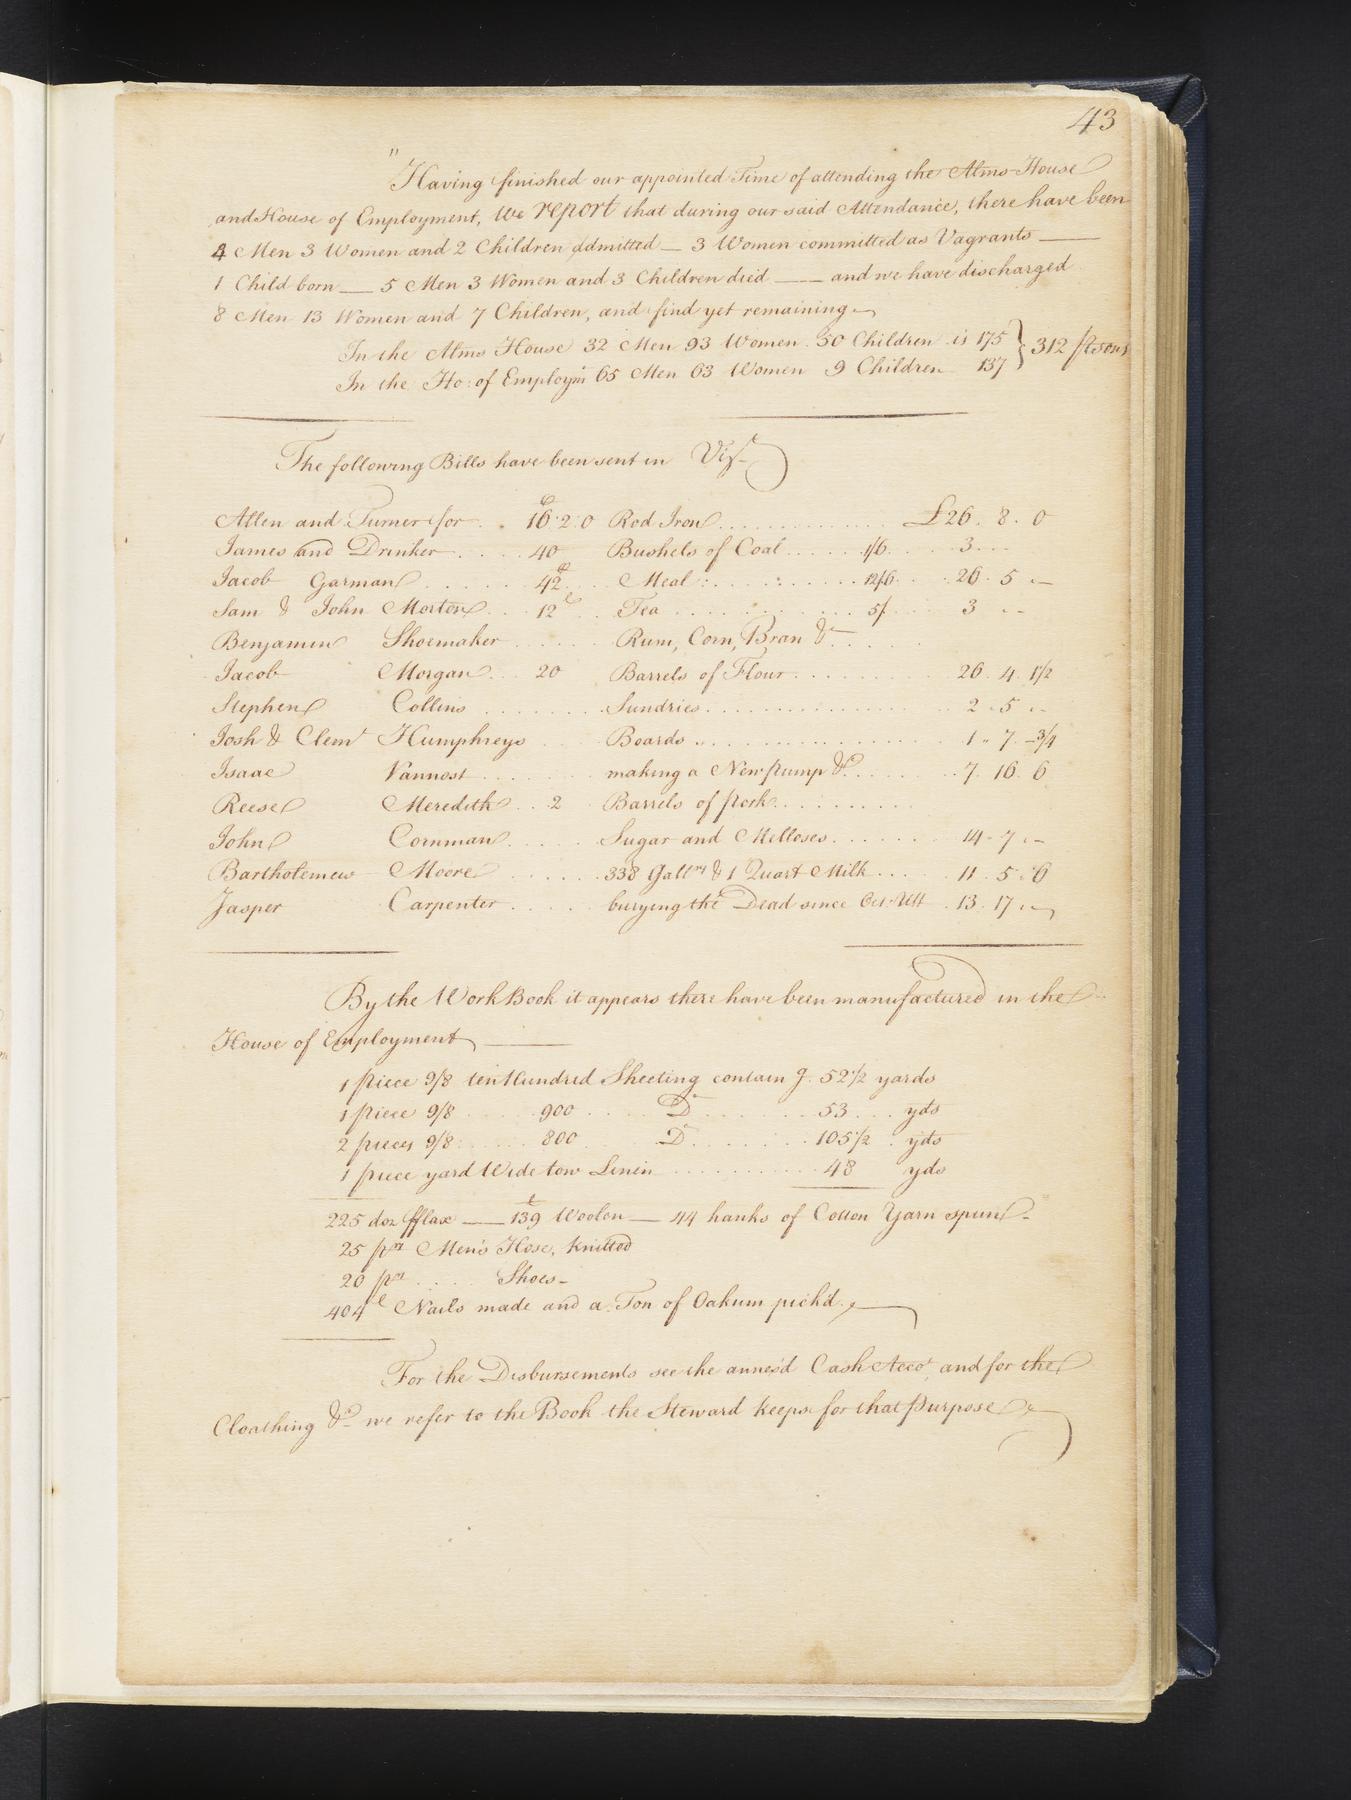 43
"Having finished our appointed Time of attending the Alms-House
and House of Employment, We report that during our said Attendance, there have been
4 Men 3 Women and 2 Children admitted — 3 Women committed as Vagrants —
1 Child born — 5 Men 3 Women and 3 Children died — and we have discharged
8 Men 13 Women and 7 Children, and find yet remaining
In the Alms House 32 Men 93 Women . 50 Children is 175 } 312 persons
In the Ho: of Employmt 65 Men 63 Women 9 Children 137
The following Bills have been sent in Vizt
Allen and Turner for . . 16.2.0 Rod Iron . . . . £26 . 8 . 0
James and Drinker . . . . 40 Bushels of Coal . . . . 1/6 . . . . 3 . . .
Jacob Garman . . . . 42 . . Meal . . . . 12/6 . . . 26 . 5 . —
Sam & John Morton . . . 12 . . Tea . . . . 5/ . . . 3 - -
Benjamin Shoemaker . . . . Rum, Corn, Bran &c . . . .
Jacob Morgan . . . 20 Barrels of Flour . . . . 26 . 4 . 1 1/2
Stephen Collins . . . . Sundries . . . . 2 . 5 . -
Josh & Clemt Humphreys Boards . . . . 1 . 7 . - 3/4
Isaac Vannost . . . . making a New pump &c . . . . 7 . 16 . 6
Reese Meredith . . 2 Barrels of pork . . . .
John Cornman . . . . Sugar and Melloses . . . . 14 . 7 . -
Bartholemew Moore . . . . 338 Gallns & 1 Quart Milk . . . . 11 . 5 . 6
Jasper Carpenter . . . . burying the Dead since Oct. Ult . 13 . 17 . -
By the Work Book it appears there have been manufactured in the
House of Employment
1 piece 9/8 ten Hundred Sheeting containg. 52 1/2 yards
1 piece 9/8 . . . . 900 . . . . Do . . . . 53 . . . yds
2 pieces 9/8 . . . . 800 . . . . Do . . . . 105 1/2 . yds
1 piece yard Wide tow Linen . . . . 48 yds
225 doz fflax — 139 Woolen — 44 hanks of Cotton Yarn spun -
25 pr Men's Hose, knitted
20 pr . . . . Shoes -
404 Nails made and a Ton of Oakum pick'd.
For the Disbursements see the annex'd Cash Accot, and for the
Cloathing &c we refer to the Book the Steward keeps for that Purpose